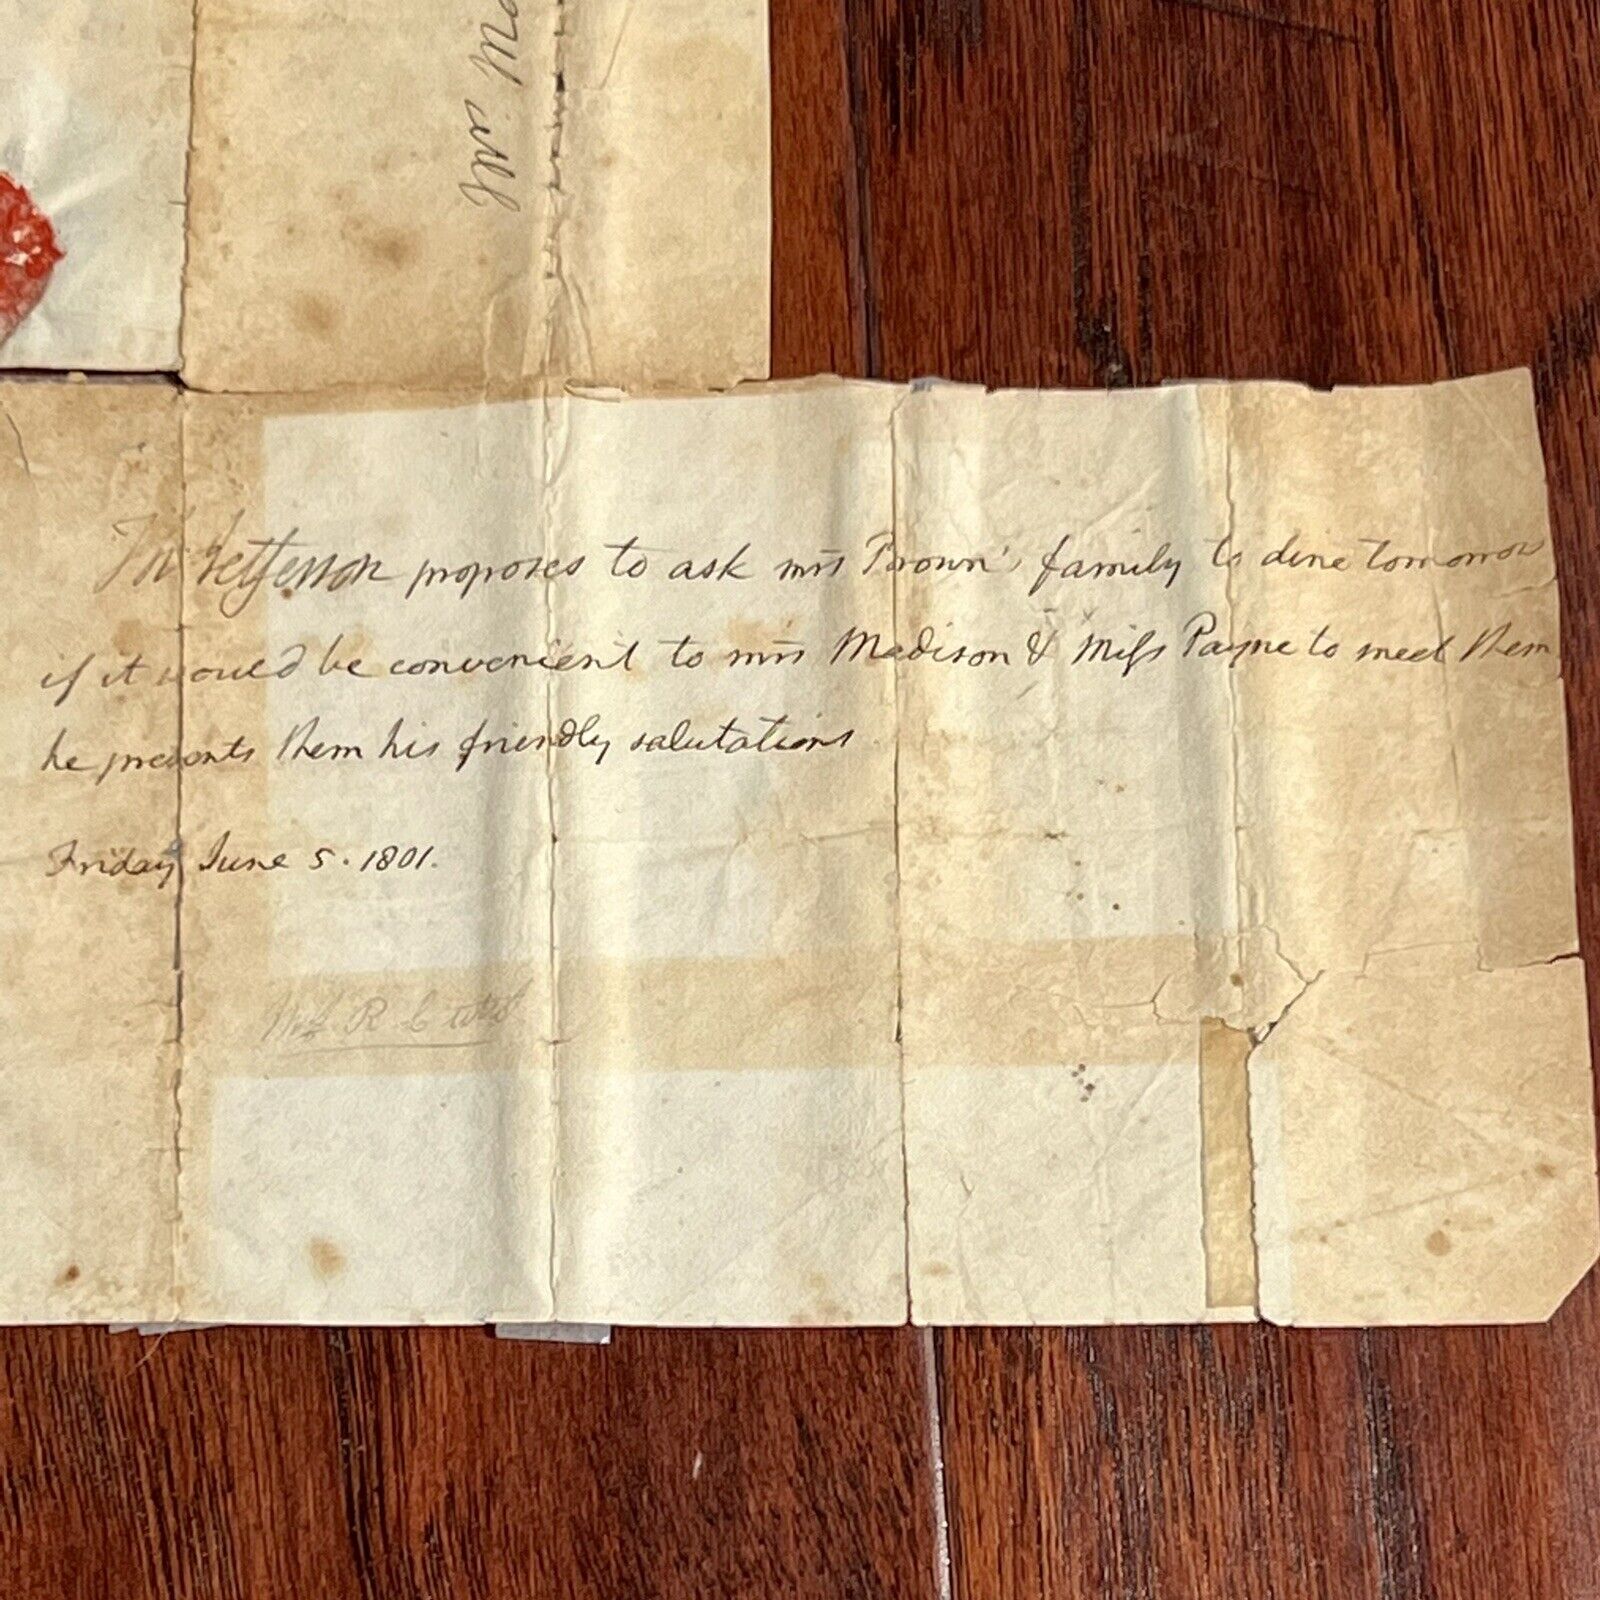 Mrs. M
Th: Jefferson proposes to ask mrs Brown's family to dine tomorrow
if it would be convenient to mrs Madison & Miss Payne to meet them
he presents them his friendly salutations
Friday June 5. 1801.
R